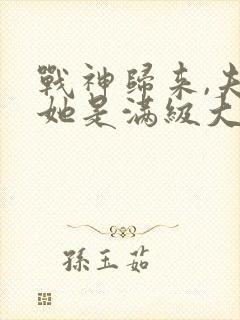 戰神歸來,夫
她是滿級大
孫玉茹